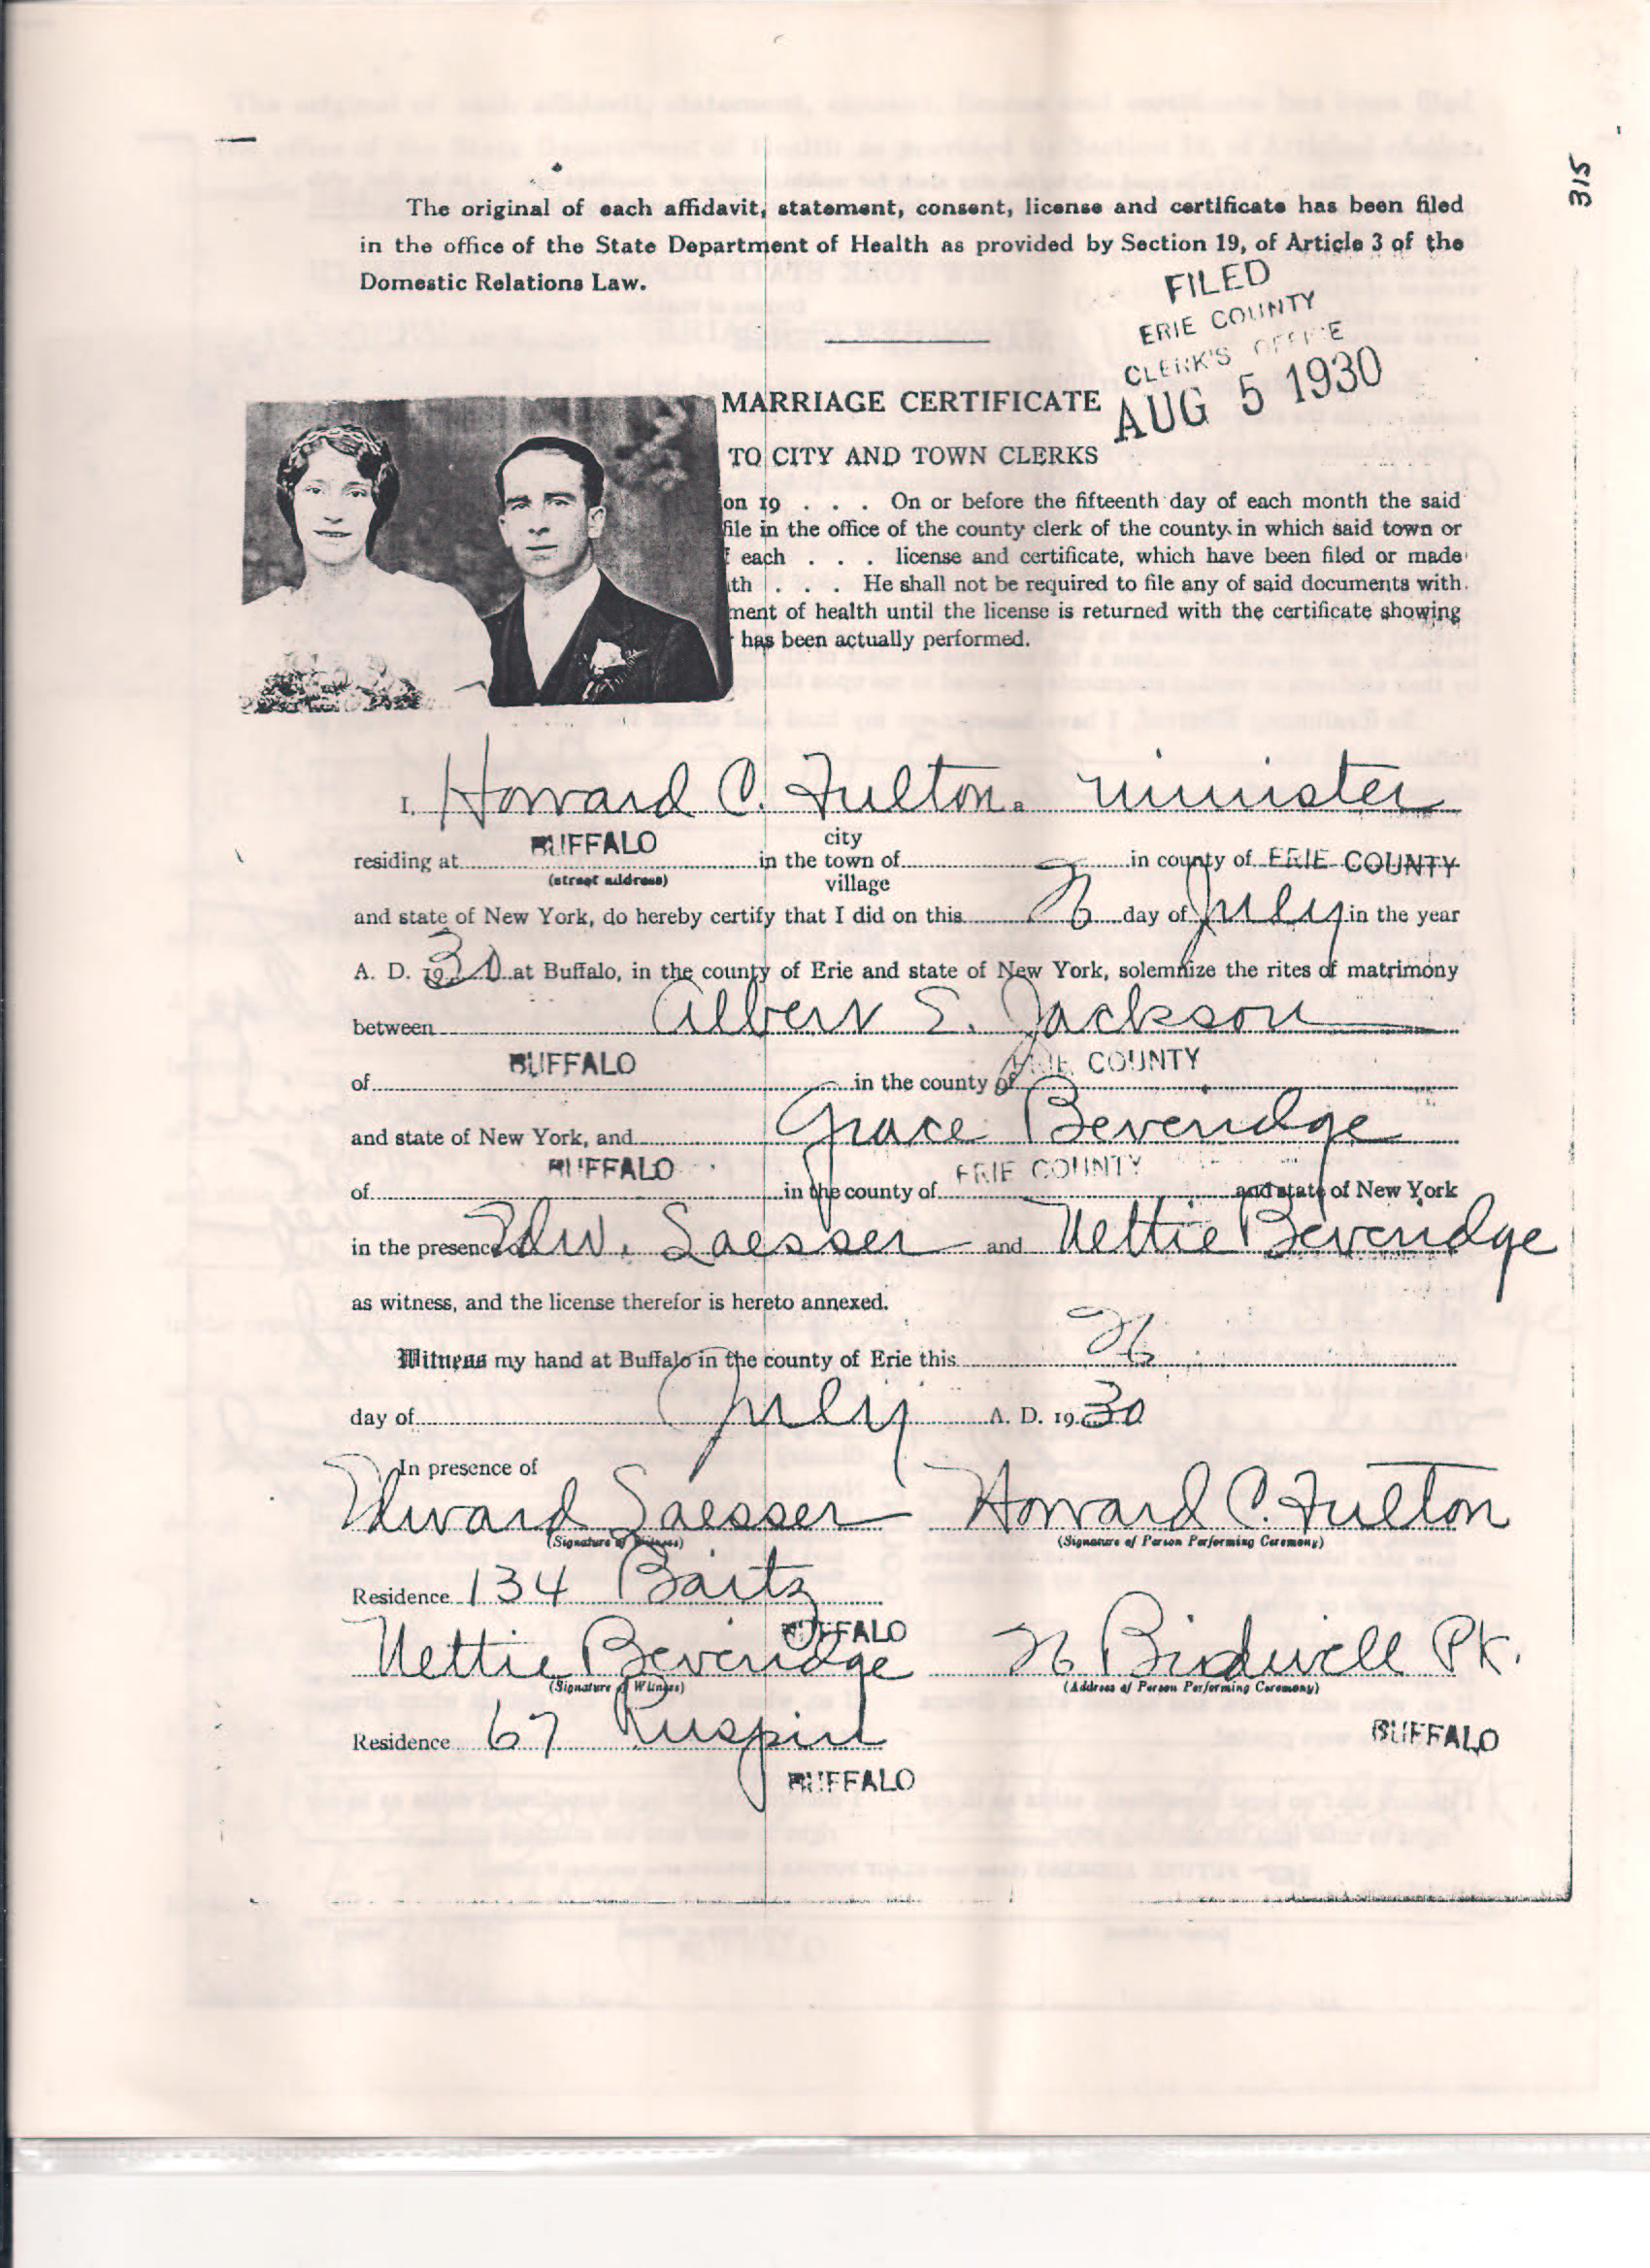 315
The original of each affidavit, statement, consent, license and certificate has been filed
in the office of the State Department of Health as provided by Section 19, of Article 3 of the
Domestic Relations Law.
FILED
ERIE COUNTY
CLERK'S OFFICE
AUG 5 1930
MARRIAGE CERTIFICATE
TO CITY AND TOWN CLERKS
on 19 . . . On or before the fifteenth day of each month the said
file in the office of the county clerk of the county in which said town or
f each . . . license and certificate, which have been filed or made
ath . . . He shall not be required to file any of said documents with
ment of health until the license is returned with the certificate showing
has been actually performed.
I, Howard C. Fulton a minister
residing at BUFFALO in the town of in county of ERIE COUNTY
city
(street address) village
and state of New York, do hereby certify that I did on this 26 day of July in the year
A. D. 1930 at Buffalo, in the county of Erie and state of New York, solemnize the rites of matrimony
between Albert E. Jackson
of BUFFALO in the county of ERIE COUNTY
and state of New York, and Grace Beveridge
of BUFFALO in the county of ERIE COUNTY and state of New York
in the presence of Edw. Saesser and Nettie Beveridge
as witness, and the license therefor is hereto annexed.
Witness my hand at Buffalo in the county of Erie this 26
day of July A. D. 1930
In presence of
Edward Saesser Howard C. Fulton
(Signature of Witness) (Signature of Person Performing Ceremony)
Residence 134 Baitz
BUFFALO
Nettie Beveridge 26 Bidwell PK.
(Signature of Witness) (Address of Person Performing Ceremony)
Residence 67 Ruspin BUFFALO
BUFFALO